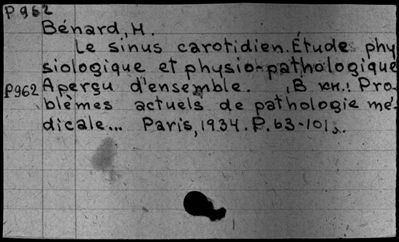 P962
Bénard, H.
Le sinus carotidien. Étude phy
siologique et physio-pathologique
P962 Aperçu d'ensemble. , В кн.: Pro-
blèmes actuels de pathologie mé-
dicale... Paris, 1934. P. 63-101,.